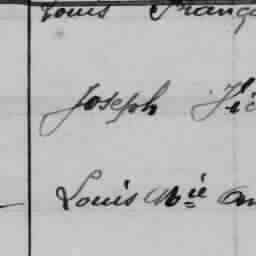 Louis França
Joseph Fié
Louis Mie An